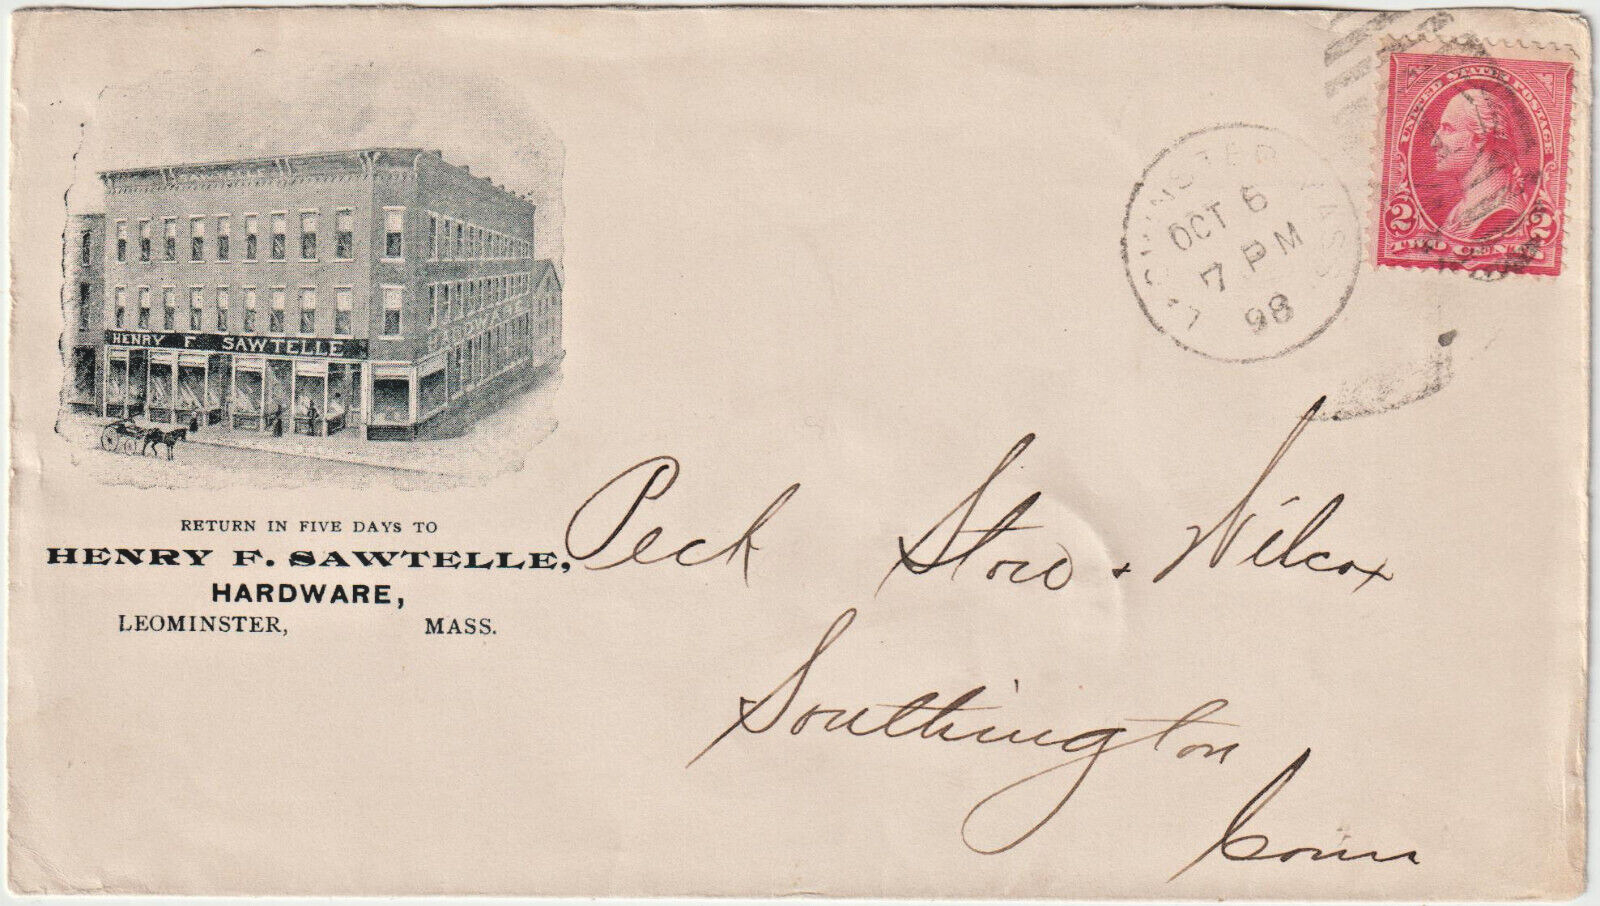 SAWTELLE
HENRY F. SAWTELLE
HARDWARE
RETURN IN FIVE DAYS TO
HENRY F. SAWTELLE,
HARDWARE,
LEOMINSTER, MASS.
LEOMINSTER MASS.
OCT 6
7 PM
98
UNITED STATES POSTAGE
2 2
TWO CENTS
Peck Stow & Wilcox
Southington
Conn